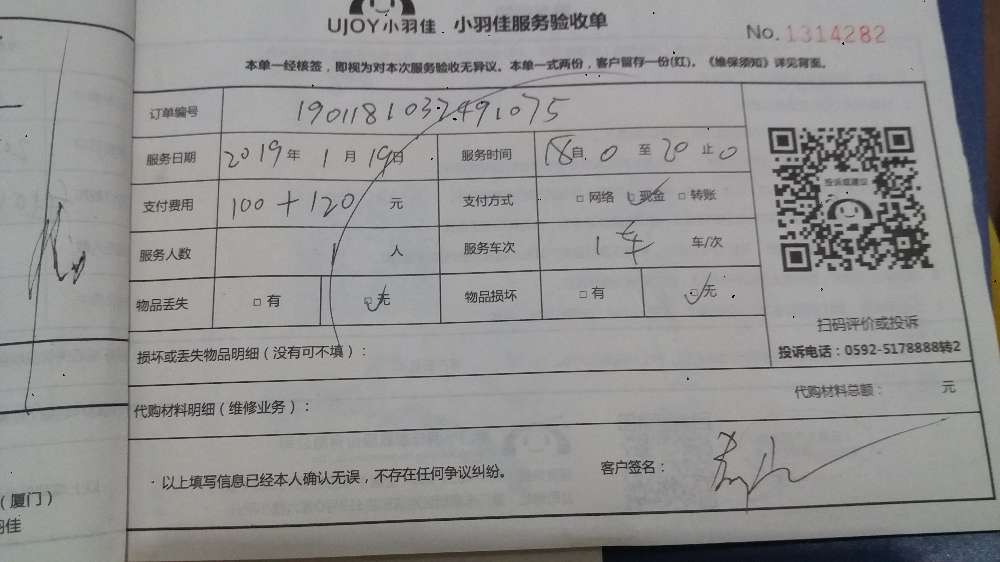 UJOY小羽佳 小羽佳服务验收单
No. 1314282
本单一经核签，即视为对本次服务验收无异议。本单一式两份，客户留存一份(红)，《维保须知》详见背面。
订单编号 1901181032491075
服务日期 2019年 1月 19日 服务时间 18自 0 至 20止 0
支付费用 100+120 元 支付方式 □ 网络 □ 现金 □ 转账
服务人数 1 人 服务车次 1车 车/次
物品丢失 □ 有 □ 无 物品损坏 □ 有 □ 无
投诉或建议
扫码评价或投诉
投诉电话：0592-5178888转2
损坏或丢失物品明细（没有可不填）：
代购材料明细（维修业务）： 代购材料总额： 元
· 以上填写信息已经本人确认无误，不存在任何争议纠纷。 客户签名：
（厦门）
羽佳